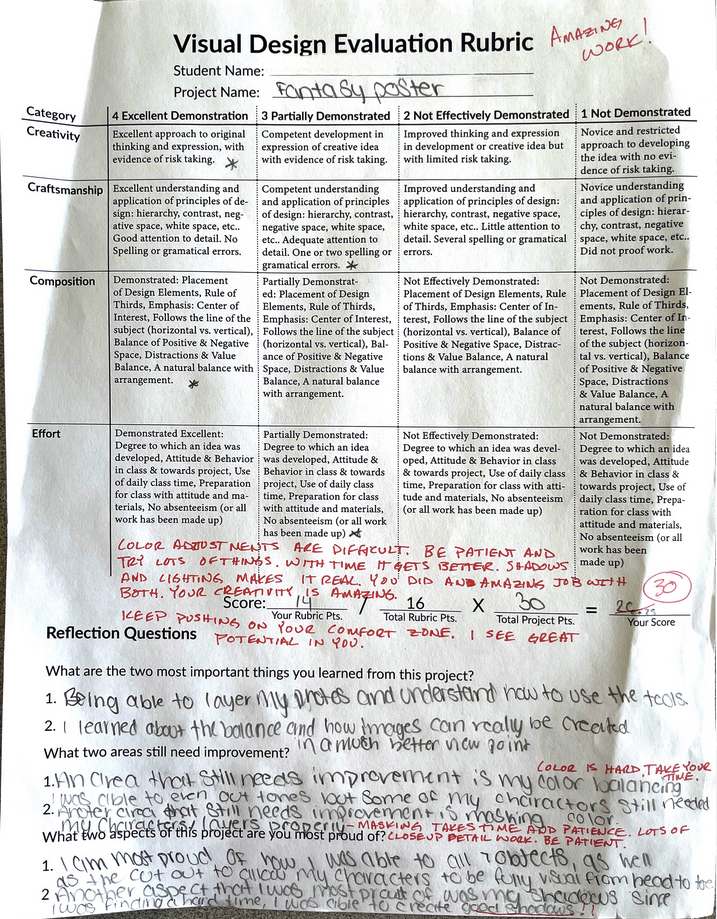 Visual Design Evaluation Rubric
AMAZING
WORK!
Student Name:
Project Name: Fantasy poster
Category
4 Excellent Demonstration
3 Partially Demonstrated
2 Not Effectively Demonstrated
1 Not Demonstrated
Creativity
Excellent approach to original
thinking and expression, with
evidence of risk taking.
Competent development in
expression of creative idea
with evidence of risk taking.
Improved thinking and expression
in development or creative idea but
with limited risk taking.
Novice and restricted
approach to developing
the idea with no evi-
dence of risk taking.
Craftsmanship
Excellent understanding and
application of principles of de-
sign: hierarchy, contrast, neg-
ative space, white space, etc..
Good attention to detail. No
Spelling or gramatical errors.
Competent understanding
and application of principles
of design: hierarchy, contrast,
negative space, white space,
etc.. Adequate attention to
detail. One or two spelling or
gramatical errors.
Improved understanding and
application of principles of design:
hierarchy, contrast, negative space,
white space, etc.. Little attention to
detail. Several spelling or gramatical
errors.
Novice understanding
and application of prin-
ciples of design: hierar-
chy, contrast, negative
space, white space, etc..
Did not proof work.
Composition
Demonstrated: Placement
of Design Elements, Rule of
Thirds, Emphasis: Center of
Interest, Follows the line of the
subject (horizontal vs. vertical),
Balance of Positive & Negative
Space, Distractions & Value
Balance, A natural balance with
arrangement.
Partially Demonstrat-
ed: Placement of Design
Elements, Rule of Thirds,
Emphasis: Center of Interest,
Follows the line of the subject
(horizontal vs. vertical), Bal-
ance of Positive & Negative
Space, Distractions & Value
Balance, A natural balance
with arrangement.
Not Effectively Demonstrated:
Placement of Design Elements, Rule
of Thirds, Emphasis: Center of In-
terest, Follows the line of the subject
(horizontal vs. vertical), Balance of
Positive & Negative Space, Distrac-
tions & Value Balance, A natural
balance with arrangement.
Not Demonstrated:
Placement of Design El-
ements, Rule of Thirds,
Emphasis: Center of In-
terest, Follows the line
of the subject (horizon-
tal vs. vertical), Balance
of Positive & Negative
Space, Distractions
& Value Balance, A
natural balance with
arrangement.
Effort
Demonstrated Excellent:
Degree to which an idea was
developed, Attitude & Behavior
in class & towards project, Use
of daily class time, Preparation
for class with attitude and ma-
terials, No absenteeism (or all
work has been made up)
Partially Demonstrated:
Degree to which an idea
was developed, Attitude &
Behavior in class & towards
project, Use of daily class
time, Preparation for class
with attitude and materials,
No absenteeism (or all work
has been made up)
Not Effectively Demonstrated:
Degree to which an idea was devel-
oped, Attitude & Behavior in class
& towards project, Use of daily class
time, Preparation for class with atti-
tude and materials, No absenteeism
(or all work has been made up)
Not Demonstrated:
Degree to which an idea
was developed, Attitude
& Behavior in class &
towards project, Use of
daily class time, Prepa-
ration for class with
attitude and materials,
No absenteeism (or all
work has been
made up)
COLOR ADJUSTMENTS ARE DIFFICULT. BE PATIENT AND
TRY LOTS OF THINGS. WITH TIME IT GETS BETTER. SHADOWS
AND LIGHTING MAKES IT REAL. YOU DID AND AMAZING JOB WITH
BOTH. YOUR CREATIVITY IS AMAZING.
30
Score: 14 / 16 X 30 = 26.25
Your Rubric Pts. Total Rubric Pts. Total Project Pts. Your Score
KEEP PUSHING ON YOUR COMFORT ZONE. I SEE GREAT
POTENTIAL IN YOU.
Reflection Questions
What are the two most important things you learned from this project?
1. Being able to layer my photos and understand how to use the tools.
2. I learned about the balance and how images can really be created
in a much better view point
What two areas still need improvement?
COLOR IS HARD. TAKE YOUR
TIME.
1. An area that still needs improvement is my color balancing
I was able to even out tones but some of my charactors still needed
color.
2. Another area that still needs improvement is masking
my characters/layers properly - MASKING TAKES TIME AND PATIENCE. LOTS OF
CLOSEUP DETAIL WORK. BE PATIENT.
What two aspects of this project are you most proud of?
1. I am most proud of how I was able to all 7 objects, as well
as the cut out to allow my characters to be fully visual from head to toe
2 Another aspect that I was most proud of was my shadows sinse
I was finding a hard time, I was able to create good shadows!!